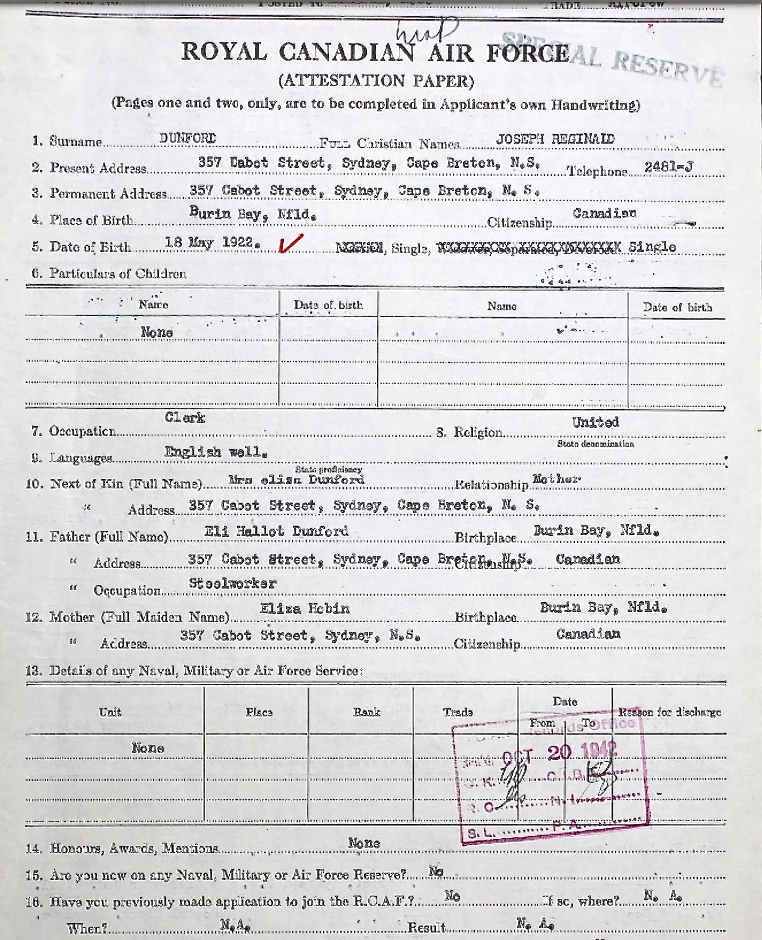 POSTED TO TRADE
SPECIAL RESERVE
ROYAL CANADIAN AIR FORCE
(ATTESTATION PAPER)
(Pages one and two, only, are to be completed in Applicant's own Handwriting)
1. Surname DUNFORD Full Christian Names JOSEPH REGINALD
2. Present Address 357 Cabot Street, Sydney, Cape Breton, N.S. Telephone 2481-J
3. Permanent Address 357 Cabot Street, Sydney, Cape Breton, N. S.
4. Place of Birth Burin Bay, Nfld. Citizenship Canadian
5. Date of Birth 18 May 1922. ✓ Married, Single, Widower, Separated, Divorced Single
6. Particulars of Children
Name Date of birth Name Date of birth
None
7. Occupation Clerk 8. Religion United
State denomination
9. Languages English well.
State proficiency
10. Next of Kin (Full Name) Mrs eliza Dunford Relationship Mother
" Address 357 Cabot Street, Sydney, Cape Breton, N. S.
11. Father (Full Name) Eli Hallot Dunford Birthplace Burin Bay, Nfld.
" Address 357 Cabot Street, Sydney, Cape Breton, N.S. Citizenship Canadian
" Occupation Steelworker
12. Mother (Full Maiden Name) Eliza Hobin Birthplace Burin Bay, Nfld.
" Address 357 Cabot Street, Sydney, N.S. Citizenship Canadian
13. Details of any Naval, Military or Air Force Service:
Unit Place Rank Trade Date From To Reason for discharge
None
Records Office
OCT 20 1942
C.I.B.
R.C. N.I.
S.L. P.A.
14. Honours, Awards, Mentions None
15. Are you now on any Naval, Military or Air Force Reserve? No
16. Have you previously made application to join the R.C.A.F.? No If so, where? N. A.
When? N.A. Result N. A.